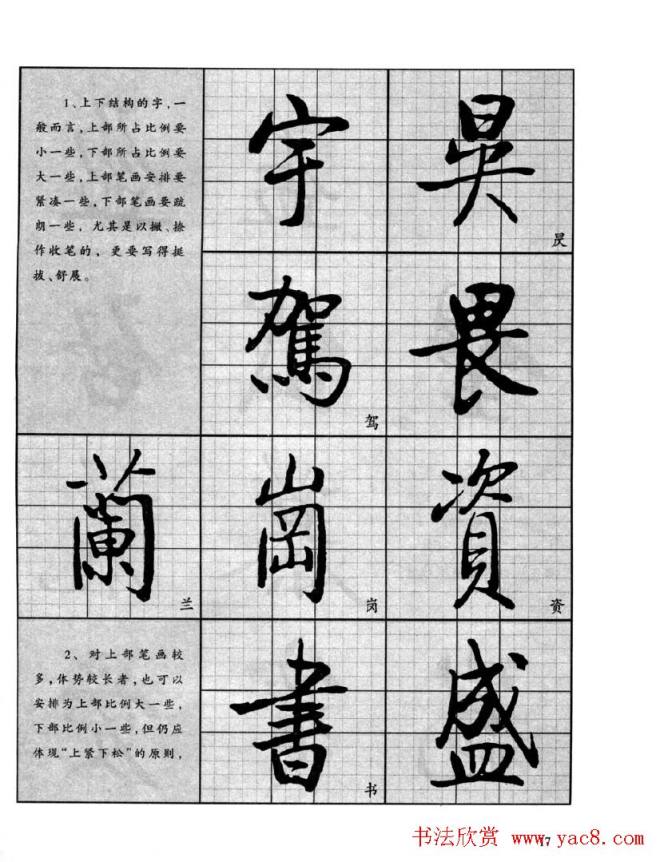 1、上下结构的字，一
般而言，上部所占比例要
小一些，下部所占比例要
大一些，上部笔画安排要
紧凑一些，下部笔画要疏
朗一些，尤其是以撇、捺
作收笔的，更要写得挺
拔、舒展。
宇
駕
驾
畏
蘭
兰
崗
岗
資
资
2、对上部笔画较
多，体势较长者，也可以
安排为上部比例大一些，
下部比例小一些，但仍应
体现“上紧下松”的原则，
書
书
盛
书法欣赏 www.yac8.com